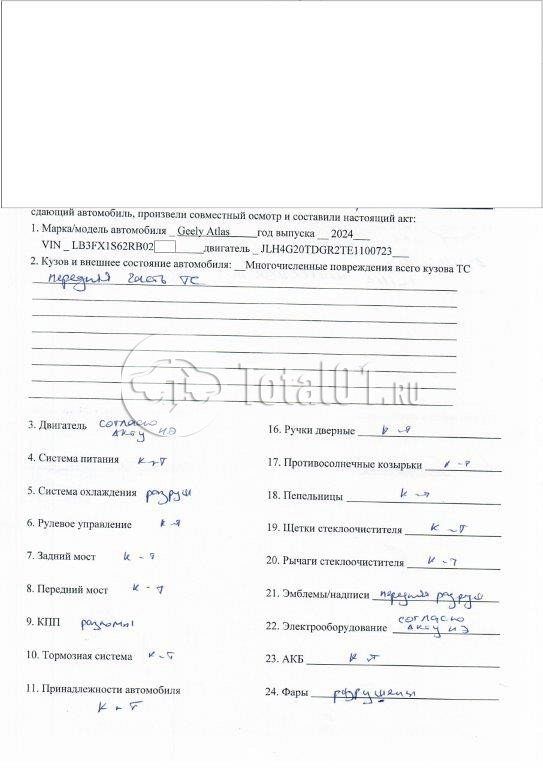 сдающий автомобиль, произвели совместный осмотр и составили настоящий акт:
1. Марка/модель автомобиля _ Geely Atlas_____год выпуска __2024___
VIN _ LB3FX1S62RB02 _____двигатель _ JLH4G20TDGR2TE1100723___
2. Кузов и внешнее состояние автомобиля: __Многочисленные повреждения всего кузова ТС
передняя часть ТС
Total01.RU
3. Двигатель согласно акту ИЭ
4. Система питания к-т
5. Система охлаждения разруш
6. Рулевое управление к-т
7. Задний мост к-т
8. Передний мост к-т
9. КПП разломы
10. Тормозная система к-т
11. Принадлежности автомобиля
к-т
16. Ручки дверные к-т
17. Противосолнечные козырьки к-т
18. Пепельницы к-т
19. Щетки стеклоочистителя к-т
20. Рычаги стеклоочистителя к-т
21. Эмблемы/надписи передняя разруш
22. Электрооборудование согласно акту ИЭ
23. АКБ к-т
24. Фары разрушены